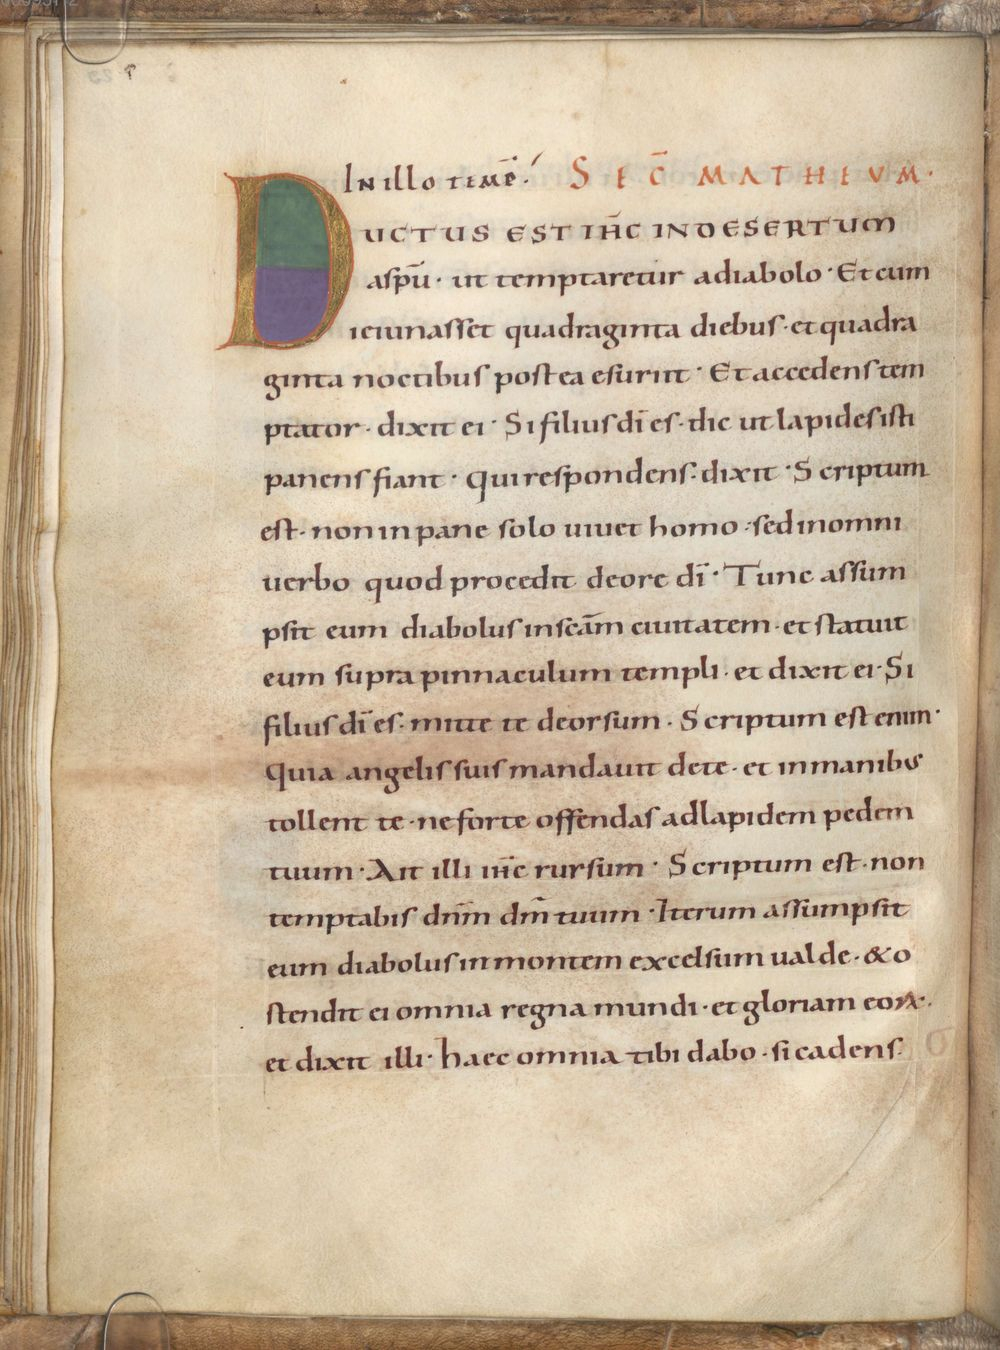 In illo tēmp̄. SEC̄ MATHEUM.
DUCTUS EST IHC̄ IN DESERTUM
a spū. ut temptaretur a diabolo. Et cum
ieiunasset quadraginta diebus. et quadra
ginta noctibus postea esuriit. Et accedens tem
ptator. dixit ei. Si filius dī es. dic ut lapides isti
panens fiant. Qui respondens. dixit. Scriptum
est. non in pane solo uiuet homo. sed in omni
uerbo quod procedit de ore dī. Tunc assum
psit eum diabolus in scām ciuitatem. et statuit
eum supra pinnaculum templi. et dixit ei. Si
filius dī es. mitte te deorsum. Scriptum est enim.
Quia angelis suis mandauit de te. et in manibus
tollent te. ne forte offendas ad lapidem pedem
tuum. Ait illi ihc̄ rursum. Scriptum est. non
temptabis dn̄m dm̄ tuum. Iterum assumpsit
eum diabolus in montem excelsum ualde. & o
stendit ei omnia regna mundi. et gloriam eoꝝ.
et dixit illi. haec omnia tibi dabo. si cadens.